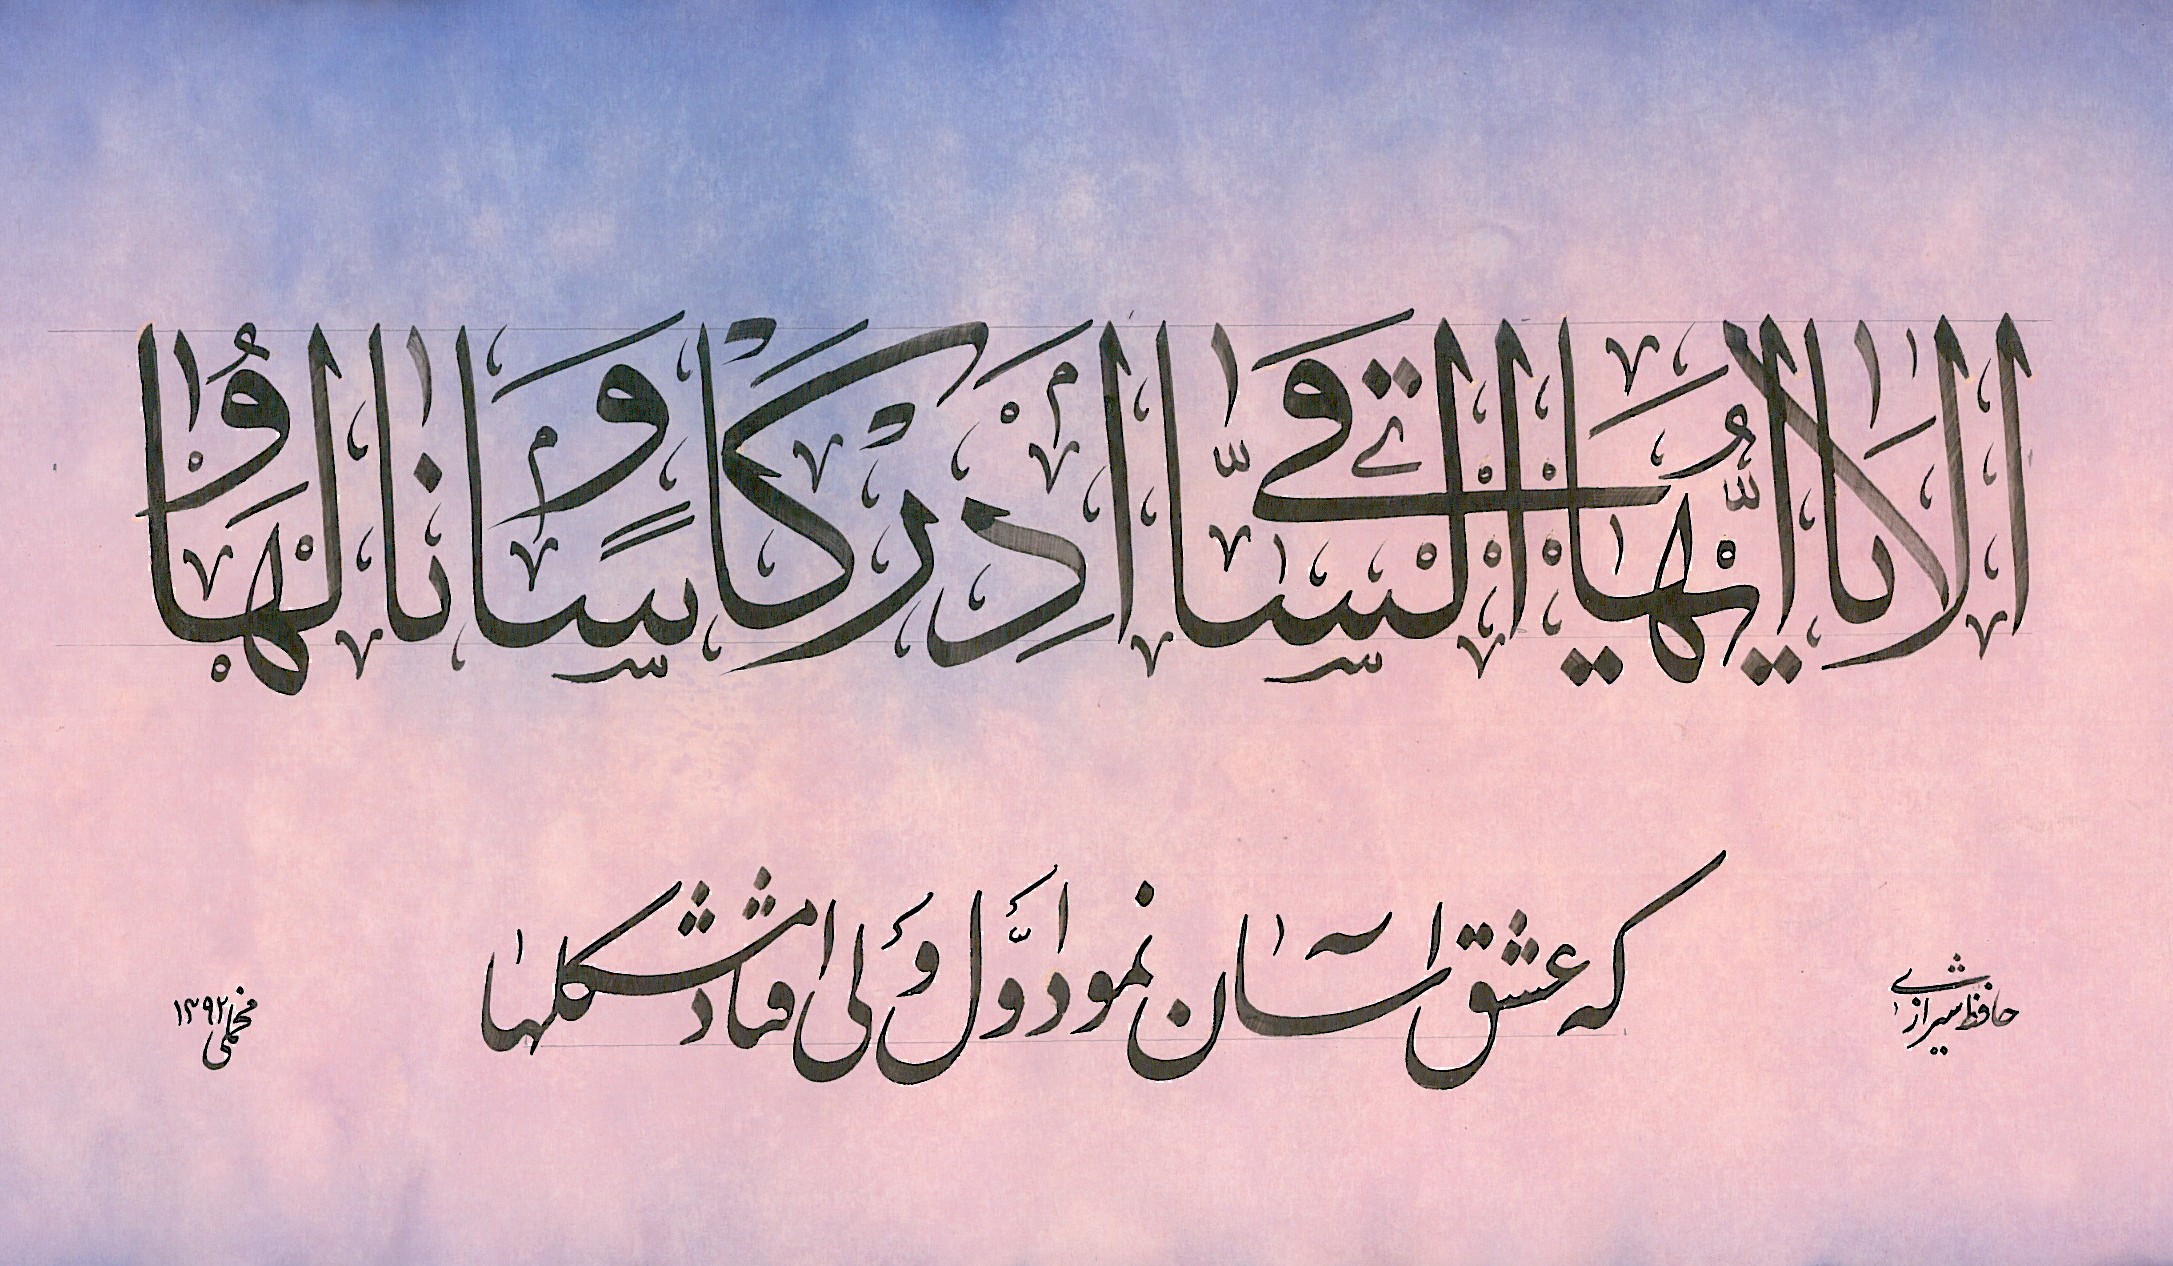 الا یا ایها الساقی ادر کاسا و ناولها
که عشق آسان نمود اول ولی افتاد مشکلها
حافظ شیرازی
مخملی ۱۳۹۲